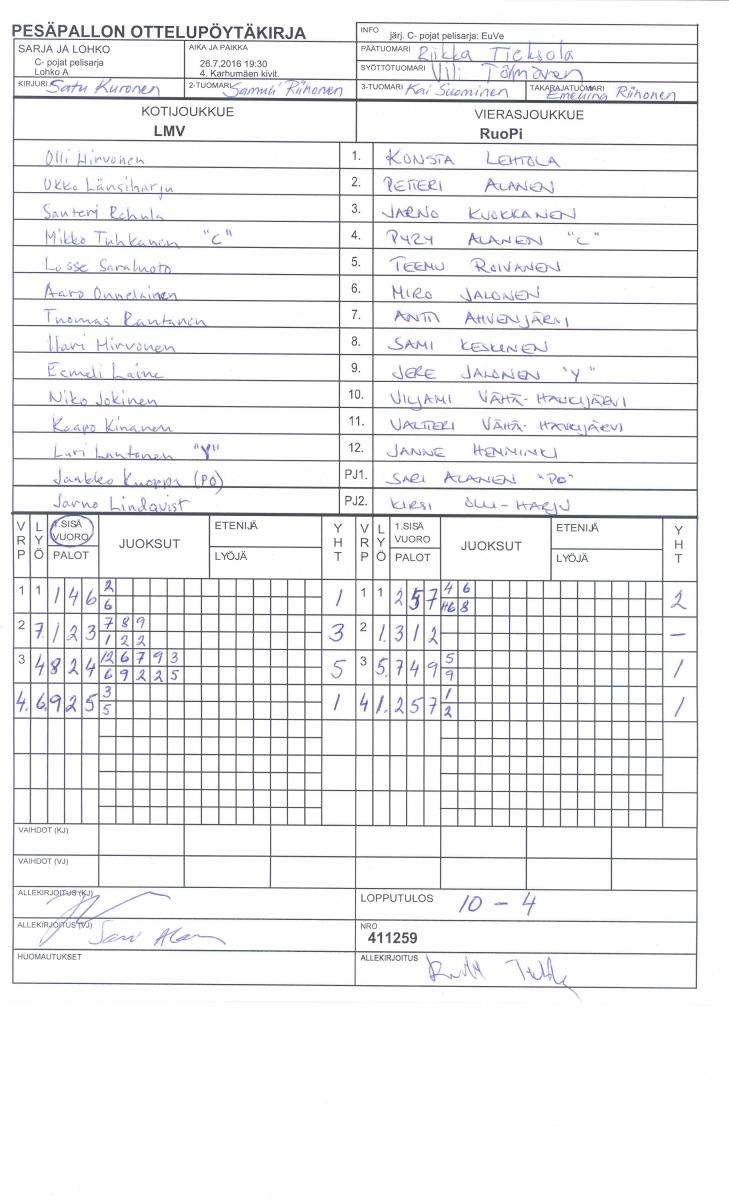 PESÄPALLON OTTELUPÖYTÄKIRJA
INFO järj. C- pojat pelisarja: EuVe
SARJA JA LOHKO
C- pojat pelisarja
Lohko A
AIKA JA PAIKKA
26.7.2016 19:30
4. Karhumäen kivit.
PÄÄTUOMARI Riikka
SYÖTTÖTUOMARI Vili
KIRJURI Satu Kuronen
2-TUOMARI Samuli Riihonen
3-TUOMARI Kai Suominen
TAKARAJATUOMARI Riihonen
KOTIJOUKKUE VIERASJOUKKUE
LMV RuoPi
Olli Hirvonen 1. KONSTA LEHTOLA
Ukko Länsiharju 2. PETTERI ALANEN
Santeri 3. JARNO KUOKKANEN
Mikko Tuhkanen "C" 4. PYRY ALANEN "C"
Lasse 5. TEEMU ROIVANEN
Aaro Onnelainen 6. MIRO JALONEN
Tuomas Rantanen 7. ANTTI AHVENJÄRVI
Ilari Hirvonen 8. SAMI KESKINEN
Eemeli Laine 9. JERE JALONEN "Y"
Niko Jokinen 10. VILJAMI VÄHÄ-HAUKIJÄRVI
Kaapo Kinanen 11. VALTTERI VÄHÄ-HAUKIJÄRVI
Lauri Lantonen "Y" 12. JANNE HEMMINKI
Jaakko Kuoppa (PO) PJ1. SARI ALANEN "PO"
Jarno Lindqvist PJ2. KIRSI OLLI-HARJU
VRP LYÖ 1.SISÄ VUORO JUOKSUT ETENIJÄ YHT VRP LYÖ 1.SISÄ VUORO JUOKSUT ETENIJÄ YHT
PALOT LYÖJÄ PALOT LYÖJÄ
1 1 1 4 6 2 1 1 1 2 5 7 4 6 2
6 8
2 7. 1 2 3 7 8 9 3 2 1. 3 1 2 –
1 2 2
3 4 8 2 4 12 6 7 9 3 5 3 5. 7 4 9 5 1
6 9 2 2 5 9
4. 6. 9 2 5 3 1 4 1. 2 5 7 1 1
5 2
VAIHDOT (KJ)
VAIHDOT (VJ)
ALLEKIRJOITUS (KJ)
LOPPUTULOS 10 – 4
ALLEKIRJOITUS (VJ) Sari Alanen
NRO
411259
HUOMAUTUKSET
ALLEKIRJOITUS